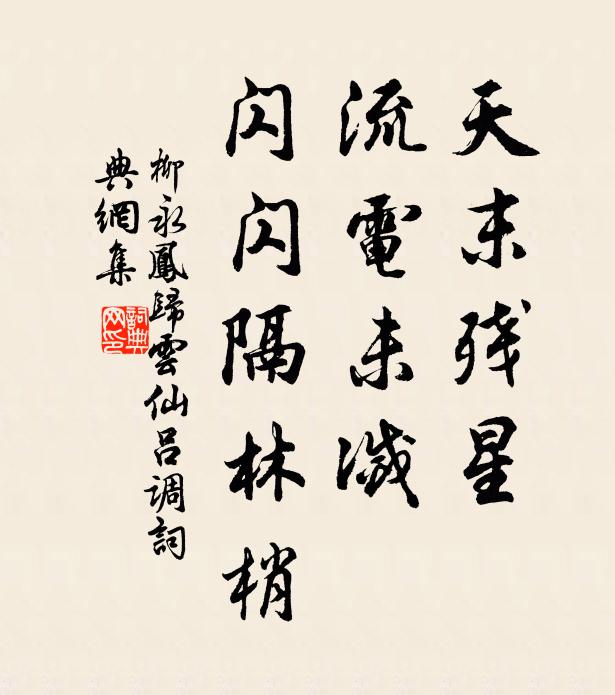 天末残星
流電未滅
閃閃隔林梢
柳永鳳歸雲仙呂調詞
典網集
詞典網印